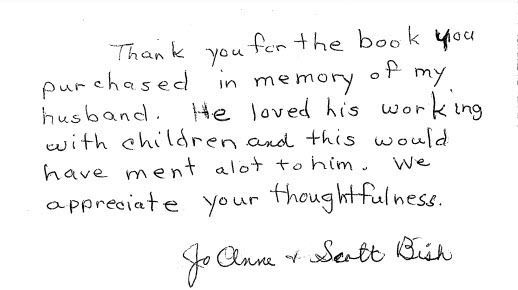 Thank you for the book you
purchased in memory of my
husband. He loved his working
with children and this would
have ment alot to him. We
appreciate your thoughtfulness.
Jo Anne & Scott Bish